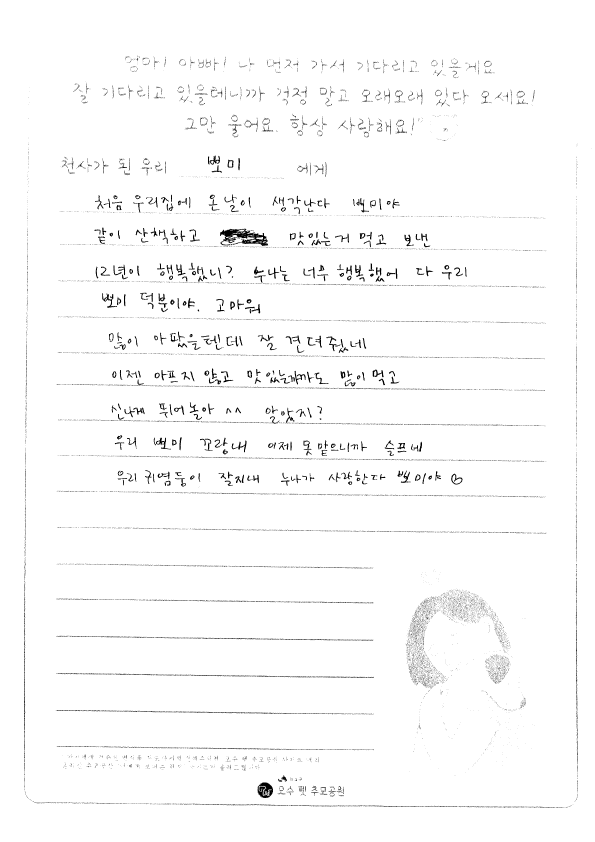 엄마! 아빠! 나 먼저 가서 기다리고 있을게요
잘 기다리고 있을테니까 걱정 말고 오래오래 있다 오세요!
그만 울어요. 항상 사랑해요!"
천사가 된 우리 뽀미 에게
처음 우리집에 온날이 생각난다 뽀미야
같이 산책하고 맛있는거 먹고 보낸
12년이 행복했니? 누나는 너무 행복했어 다 우리
뽀미 덕분이야. 고마워
많이 아팠을텐데 잘 견뎌줬네
이젠 아프지 않고 맛있는 많이 먹고
신나게 뛰어놀아 ^^ 알았지?
우리 뽀미 꼬랑내 이제 못맡으니까 슬프네
우리 귀염둥이 잘지내 누나가 사랑한다 뽀미야 ♡
오수 펫 추모공원